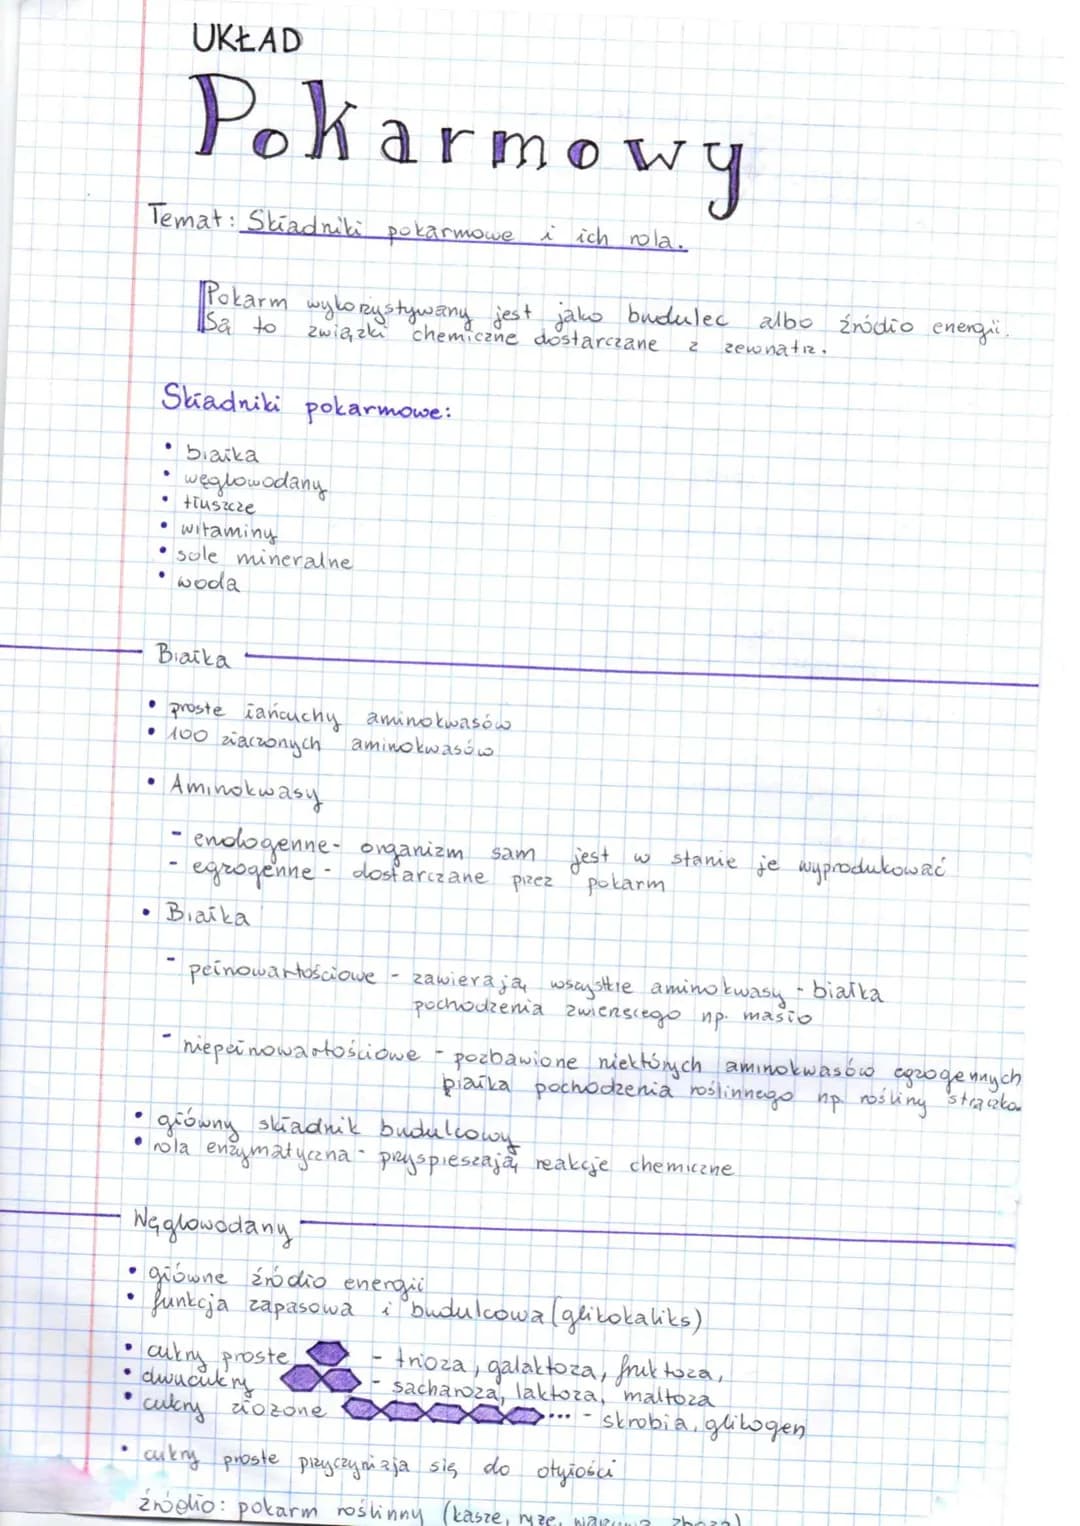 UKŁAD
Pokarmowy
Temat: Składniki pokarmowe i ich rola.
Pokarm wykorzystywany jest jako budulec albo źródło energii.
Są to związki chemiczne dostarczane z zewnątrz.
Składniki pokarmowe:
• białka
• węglowodany
• tłuszcze
• witaminy
• sole mineralne
• woda
Białka
• proste łańcuchy aminokwasów
• 100 złączonych aminokwasów
• Aminokwasy
- endogenne - organizm sam jest w stanie je wyprodukować
- egzogenne - dostarczane przez pokarm
• Białka
- pełnowartościowe - zawierają wszystkie aminokwasy - białka
pochodzenia zwierzęcego np. masło
- niepełnowartościowe - pozbawione niektórych aminokwasów egzogennych
białka pochodzenia roślinnego np. rośliny strączko.
• główny składnik budulcowy
• rola enzymatyczna - przyspieszają reakcje chemiczne
Węglowodany
• główne źródło energii
• funkcja zapasowa i budulcowa (glikokaliks)
• cukry proste - trioza, galaktoza, fruktoza,
• dwucukry - sacharoza, laktoza, maltoza
• cukry złożone ... - skrobia, glikogen
• cukry proste przyczyniają się do otyłości
źródło: pokarm roślinny (kasze, ryże, warzywa, zboża)